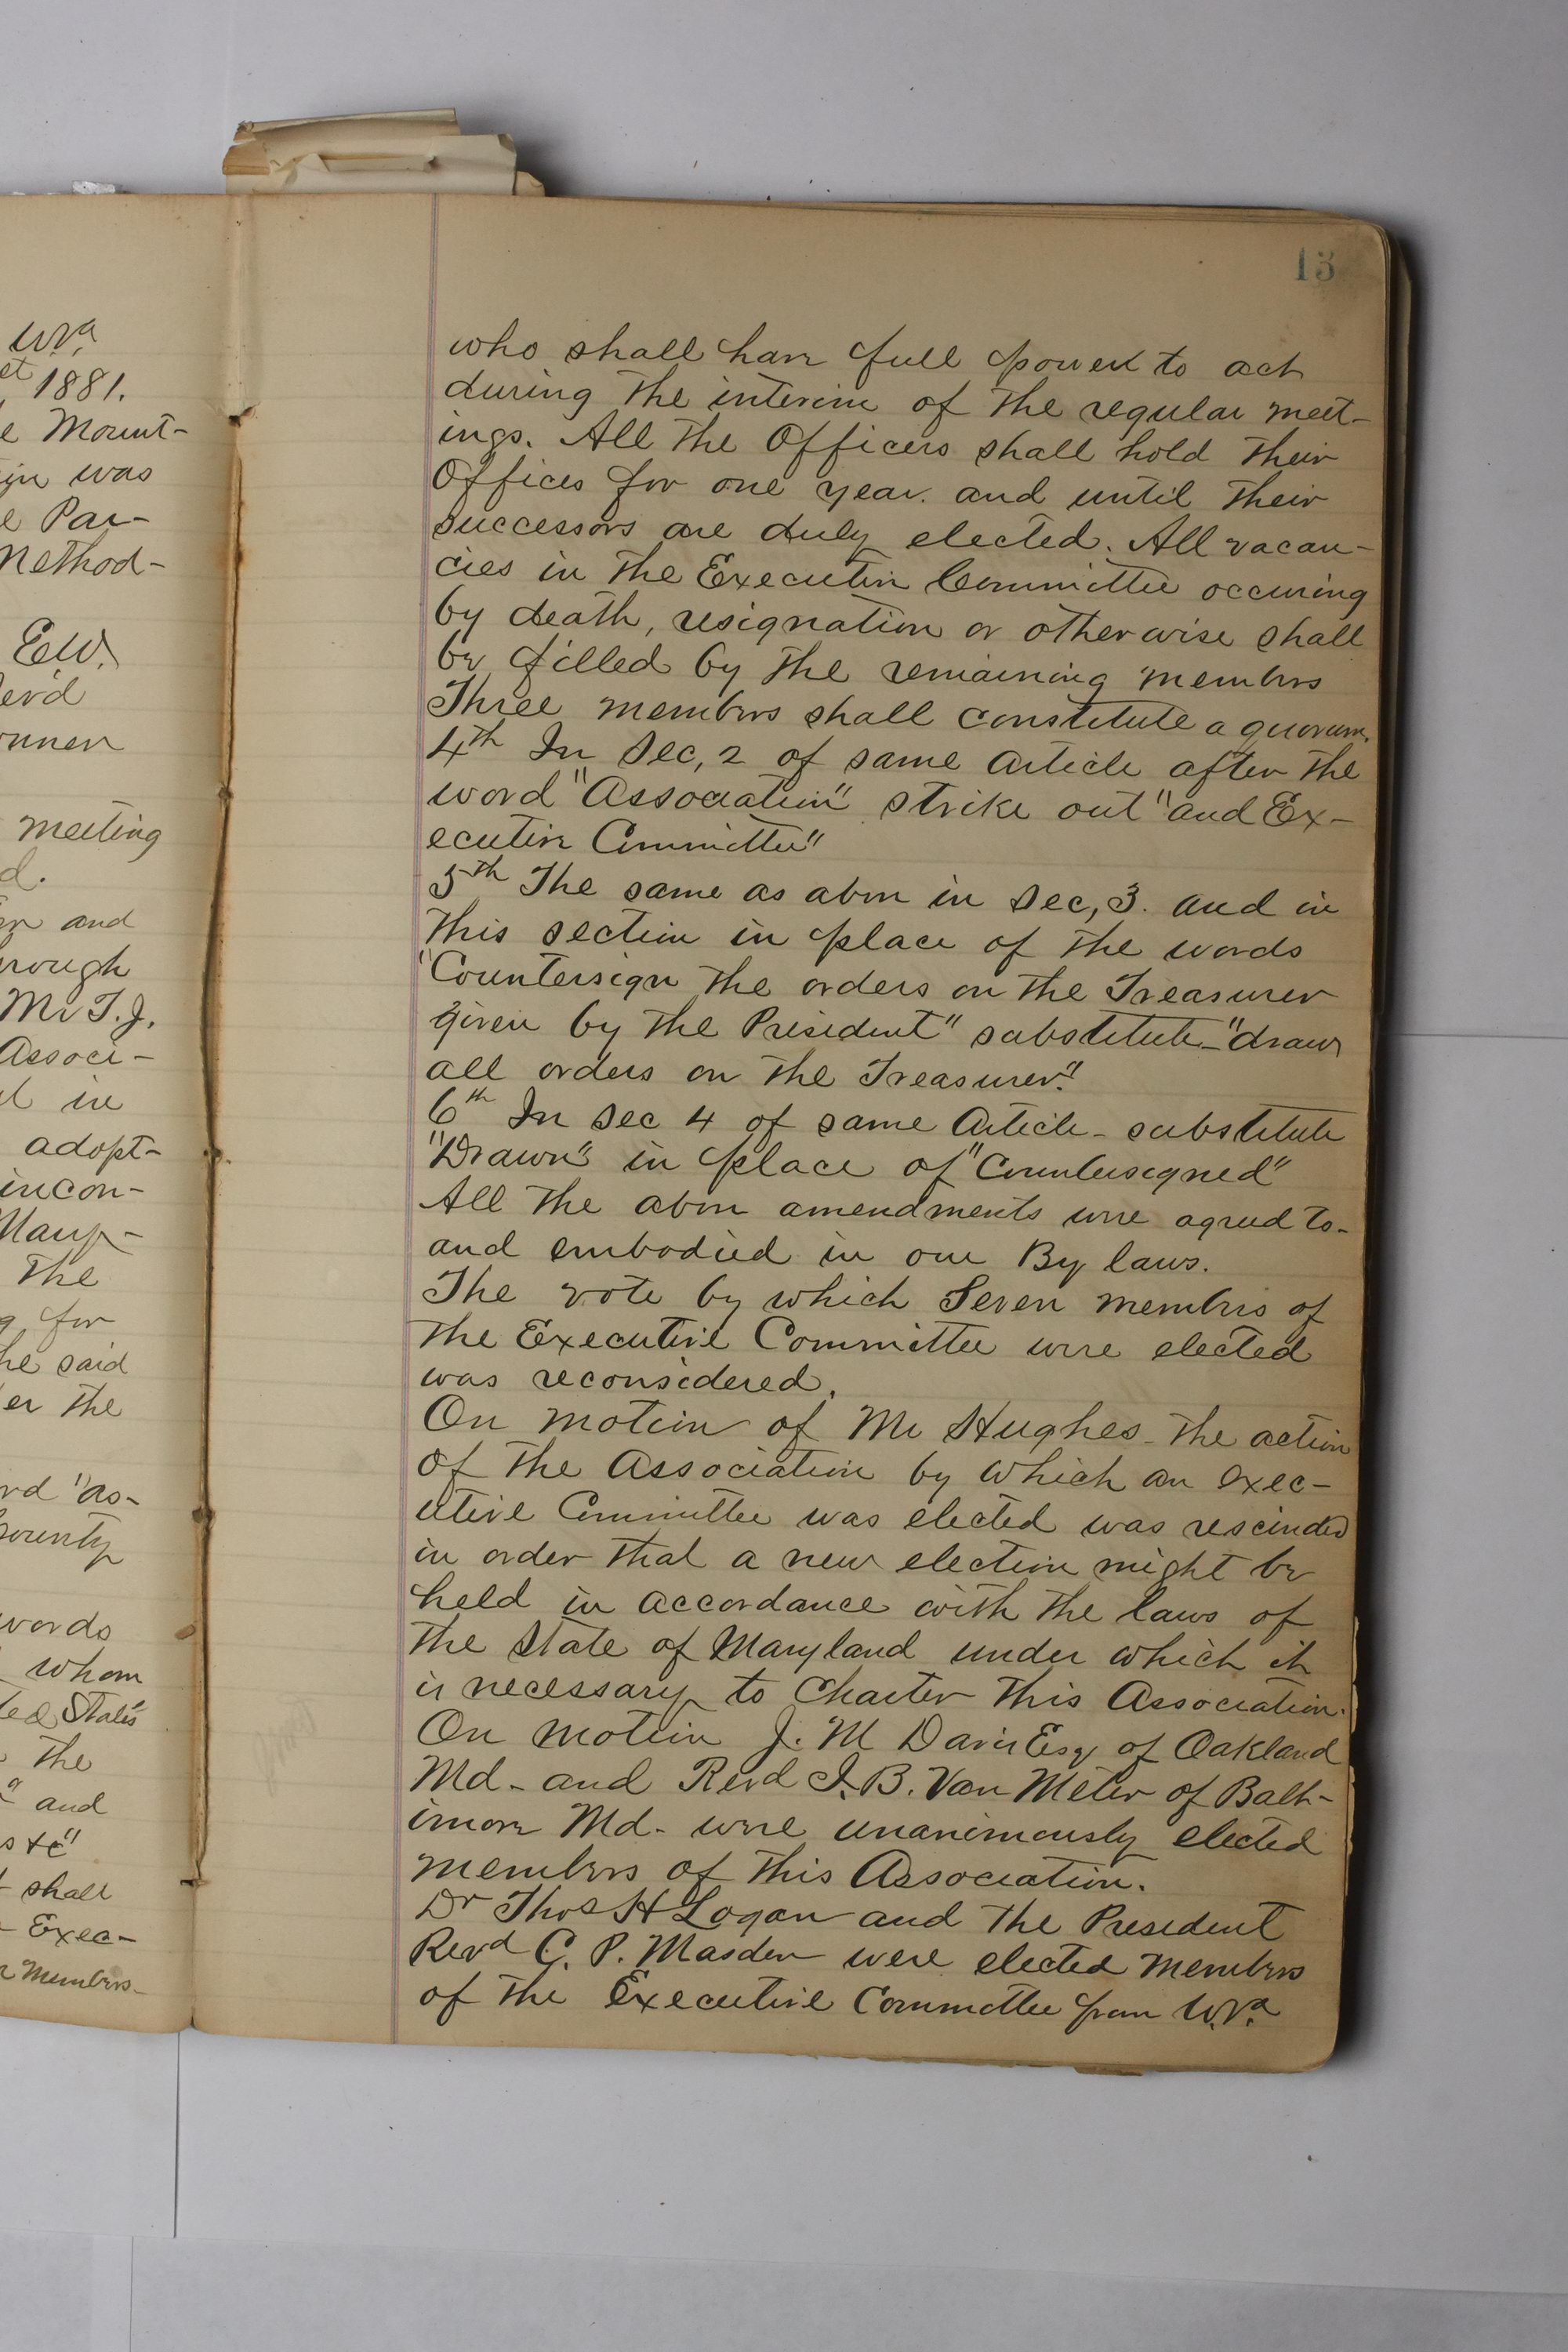 W.Va.
et 1881.
e Mount-
was
e Par-
Method-
E.W.
Rev'd
meeting
d.
and
hrough
Mr T.J.
Associ-
in
adopt-
incon-
the
for
he said
er the
rd "as-
County
words
whom
ted States
the
" and
s &c"
shall
Exec-
Members-
13
who shall have full power to act
during the interim of the regular meet-
ings. All the Officers shall hold their
Offices for one year. and until their
successors are duly elected. All vacan-
cies in the Executive Committee occuring
by death, resignation or otherwise shall
be filled by the remaining members
Three members shall constitute a quorum.
4th In Sec, 2 of same Article after the
word "Association" strike out "and Ex-
ecutive Committee"
5th The same as above in Sec, 3. and in
this section in place of the words
"Countersign the orders on the Treasurer
given by the President" substitute - "draw
all orders on the Treasurer".
6th In Sec 4 of same Article - substitute
"Drawn" in place of "Countersigned"
All the above amendments were agreed to -
and embodied in our By laws.
The vote by which Seven members of
the Executive Committee were elected
was reconsidered.
On motion of Mr Hughes - the action
of the Association by which an exec-
utive Committee was elected was rescinded
in order that a new election might be
held in accordance with the laws of
the State of Maryland under which it
is necessary to Charter this Association.
On motion J. M Davis Esq of Oakland
Md - and Revd I. B. Van Meter of Balt-
imore Md - were unanimously elected
members of this Association.
Dr Thos H Logan and the President
Revd C. P. Masden were elected members
of the Executive Committee from W.Va